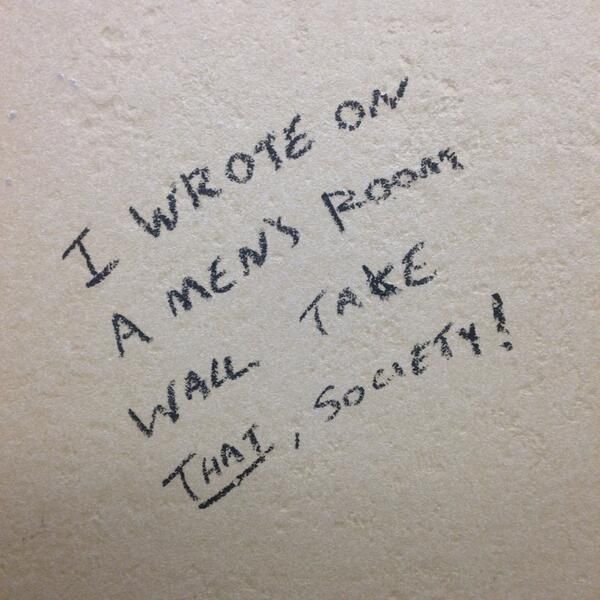 I WROTE ON
A MEN'S ROOM
WALL. TAKE
THAT, SOCIETY!